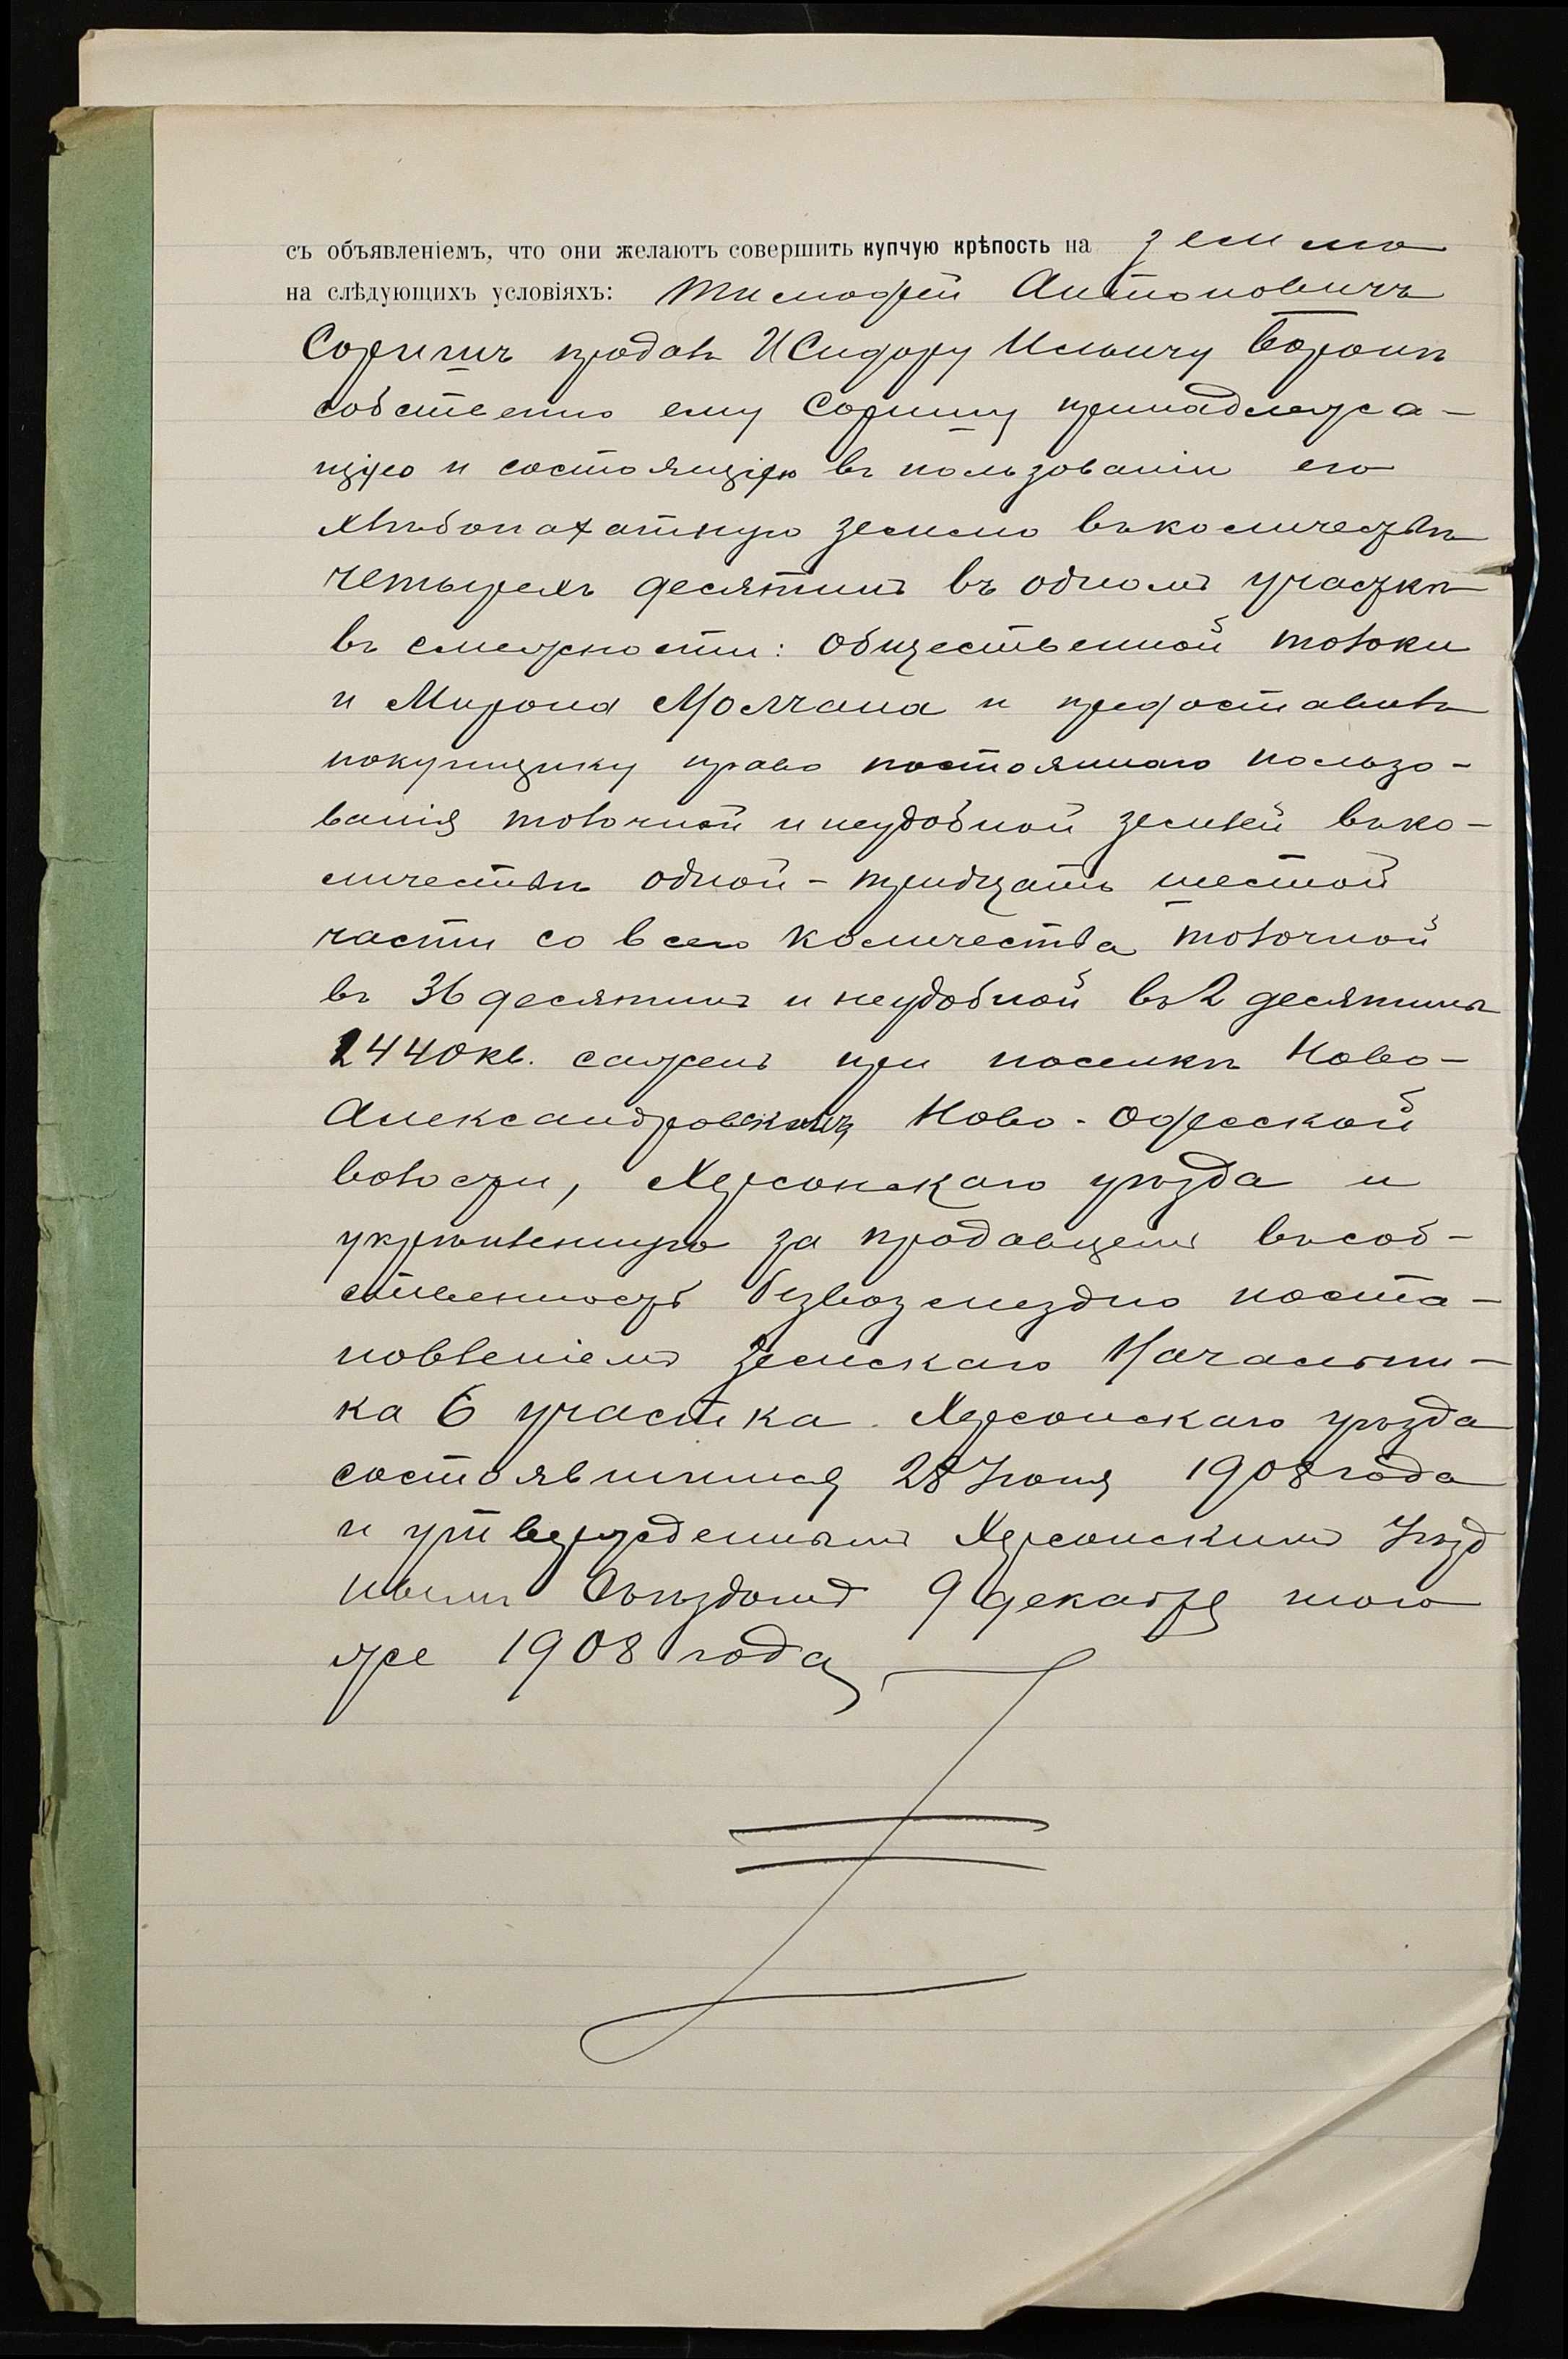 съ объявленіемъ, что они желаютъ совершить купчую крѣпость на землю
на слѣдующихъ условіяхъ: Тимофей Антоновичъ
Соришъ продалъ Исидору Ильичу Боронъ
собственно ему Соришу принадлежа-
щую и состоящую въ пользованіи его
хлѣбопахатную землю въ количествѣ
четырехъ десятинъ въ одномъ участкѣ
въ смежности: общественной толоки
и Мирона Молчана и предоставилъ
покупщику право постояннаго пользо-
ванія толочной и неудобной землей въ ко-
личествѣ одной - тридцать шестой
части со всего количества толочной
въ 36 десятинъ и неудобной въ 2 десятины
1440 кв. сажень при поселкѣ Ново-
Александровскомъ Ново-Одесской
волости, Херсонскаго уѣзда и
укрѣпленную за продавцемъ въ соб-
ственность безвозмездно поста-
новленіемъ Земскаго Начальни-
ка 6 участка Херсонскаго уѣзда
состоявшимся 28 Іюня 1908 года
и утвержденнымъ Херсонскимъ Уѣзд
нымъ Съѣздомъ 9 декабря того
же 1908 года